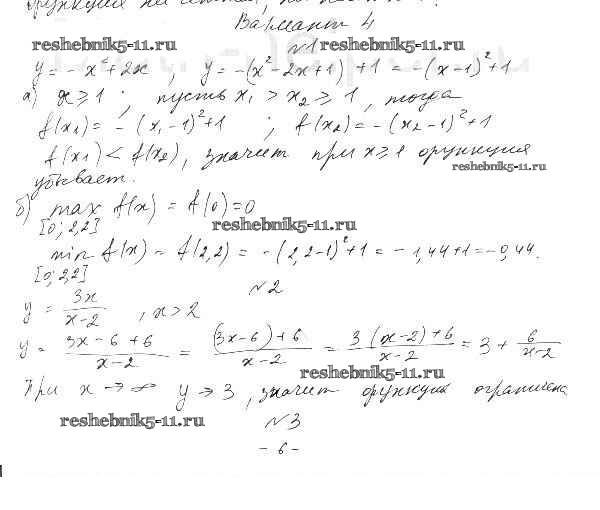 функция не
Вариант 4
reshebnik5-11.ru №1 reshebnik5-11.ru
y = -x² + 2x , y = -(x² - 2x + 1) + 1 = -(x-1)² + 1
а) x ⩾ 1 ; пусть x₁ > x₂ ⩾ 1 , тогда
f(x₁) = -(x₁-1)² + 1 ; f(x₂) = -(x₂-1)² + 1
f(x₁) < f(x₂), значит при x ⩾ 1 функция
reshebnik5-11.ru
убывает.
б) max f(x) = f(0) = 0
[0; 2,2]
reshebnik5-11.ru
min f(x) = f(2,2) = -(2,2-1)² + 1 = -1,44 + 1 = -0,44.
[0; 2,2]
№2
y = 3x/(x-2) , x > 2
y = (3x-6+6)/(x-2) = ((3x-6)+6)/(x-2) = (3(x-2)+6)/(x-2) = 3 + 6/(x-2)
reshebnik5-11.ru
При x → ∞ y → 3, значит функция ограничена
reshebnik5-11.ru №3
- 6 -